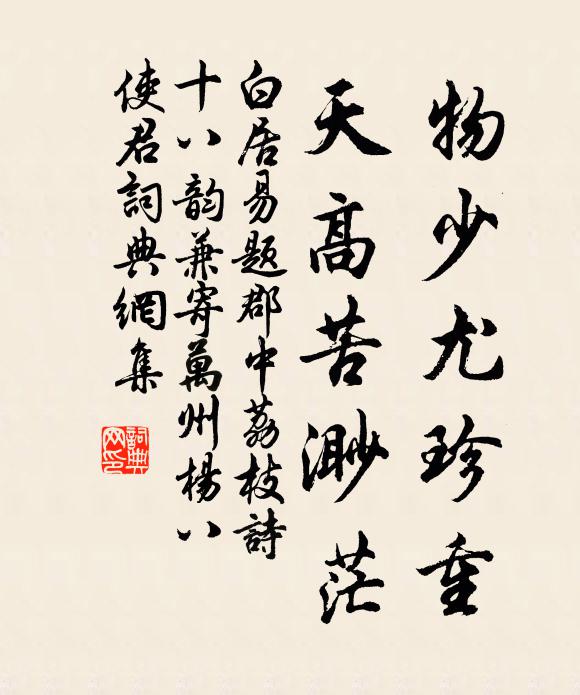 物少尤珍重
天高苦渺茫
白居易題郡中荔枝詩
十八韵兼寄萬州楊八
使君詞典網集
詞典
网印